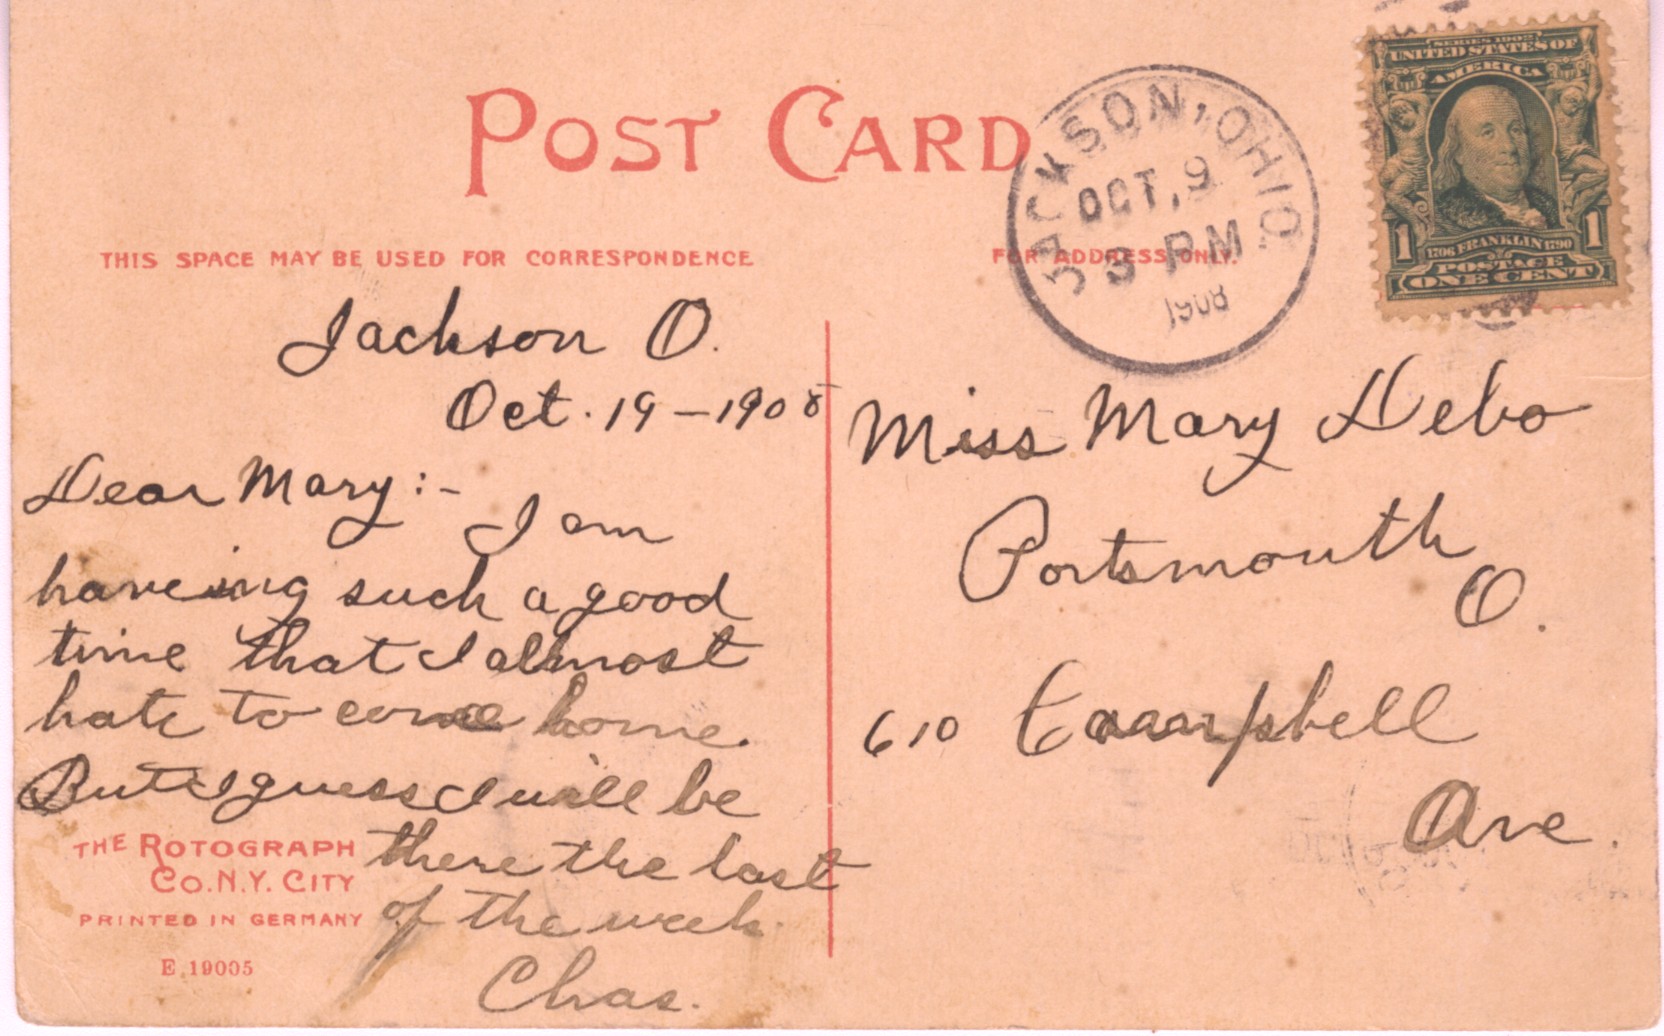 POST CARD
THIS SPACE MAY BE USED FOR CORRESPONDENCE
FOR ADDRESS ONLY.
JACKSON, OHIO.
OCT, 9
3 PM
1908
SERIES 1902
UNITED STATES OF
AMERICA
1 1
1706 FRANKLIN 1790
POSTAGE
ONE CENT
Jackson O.
Oct. 19 - 1908
Dear Mary:-
I am
haveing such a good
time that I almost
hate to come home.
But I guess I will be
there the last
of the week.
Chas.
Miss Mary Debo
Portsmouth
O.
610 Campbell
Ave.
THE ROTOGRAPH
CO. N.Y. CITY
PRINTED IN GERMANY
E. 19005